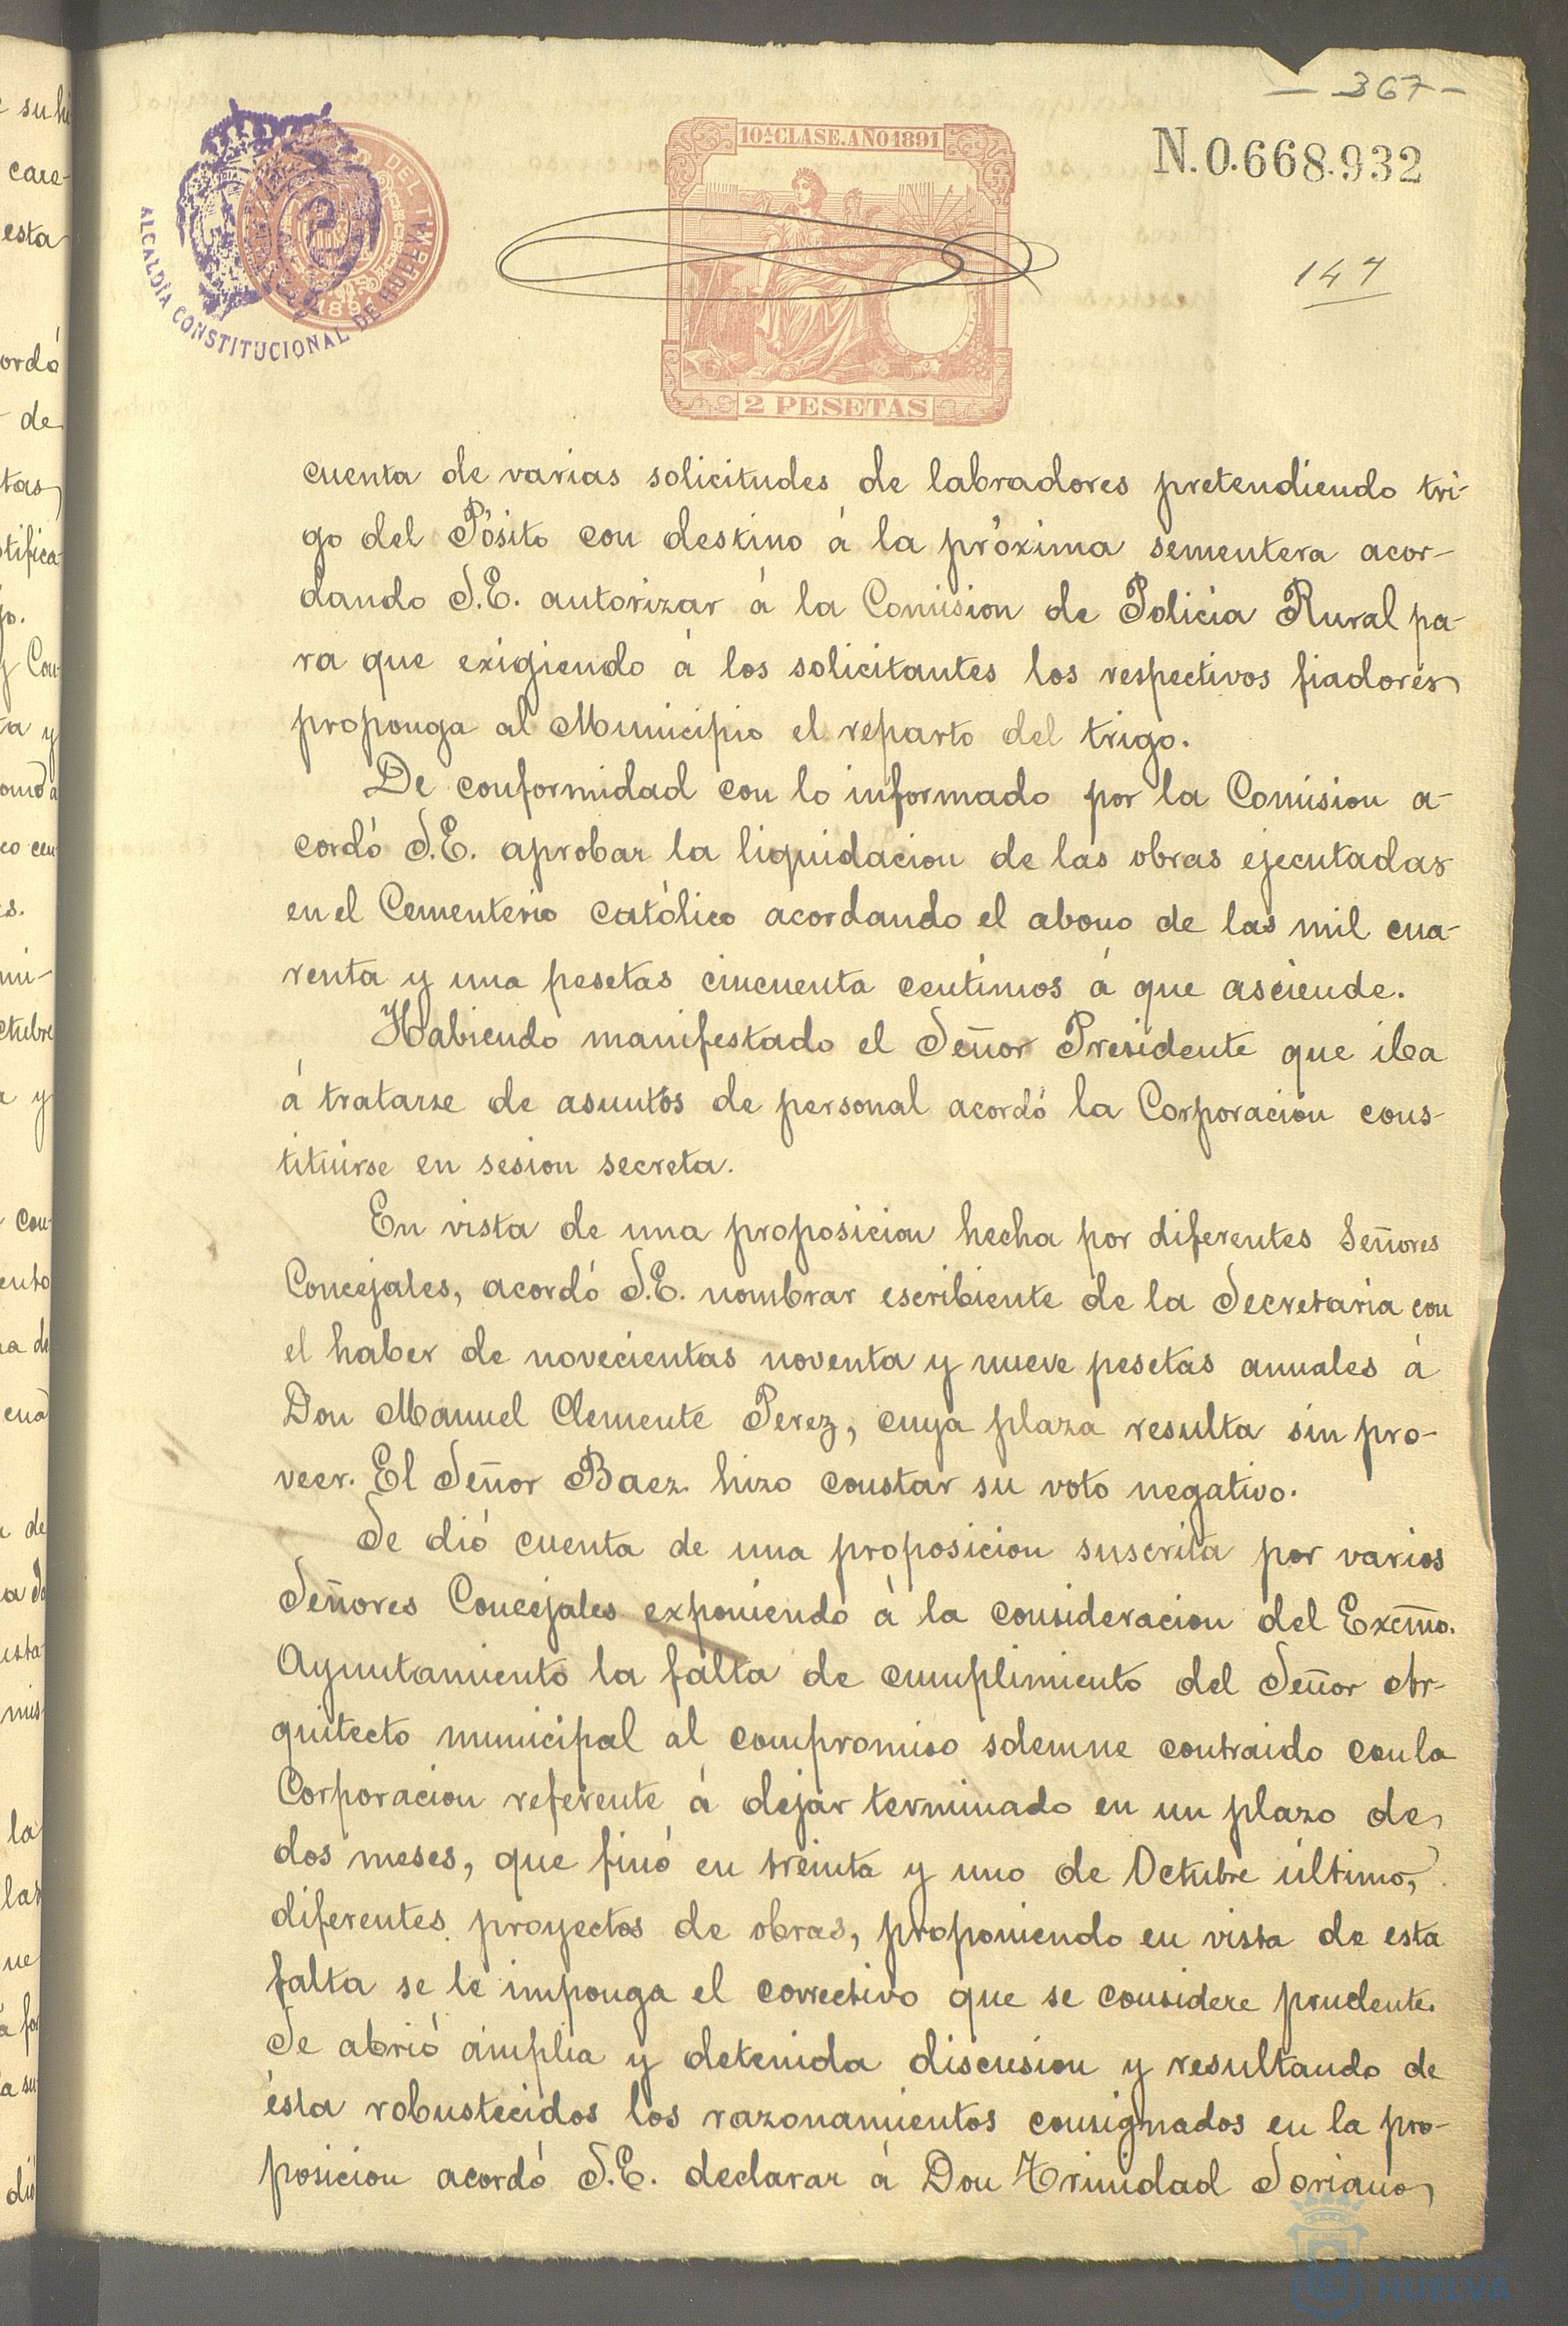 - 367 -
10ª CLASE. AÑO 1891
N.0.668.932
ALCALDÍA CONSTITUCIONAL DE HUELVA
DEL TIMBRE
1891
147
2 PESETAS
cuenta de varias solicitudes de labradores pretendiendo tri-
go del Pósito con destino á la próxima sementera acor-
dando S.E. autorizar á la Comision de Policia Rural pa-
ra que exigiendo á los solicitantes los respectivos fiadores
proponga al Municipio el reparto del trigo.
De conformidad con lo informado por la Comision a-
cordó S.E. aprobar la liquidacion de las obras ejecutadas
en el Cementerio católico acordando el abono de las mil cua-
renta y una pesetas cincuenta centimos á que asciende.
Habiendo manifestado el Señor Presidente que iba
á tratarse de asuntos de personal acordó la Corporacion cons-
tituirse en sesion secreta.
En vista de una proposicion hecha por diferentes Señores
Concejales, acordó S.E. nombrar escribiente de la Secretaria con
el haber de novecientas noventa y nueve pesetas anuales á
Don Manuel Clemente Perez, cuya plaza resulta sin pro-
veer. El Señor Baez hizo constar su voto negativo.
Se dió cuenta de una proposicion suscrita por varios
Señores Concejales exponiendo á la consideracion del Excmo.
Ayuntamiento la falta de cumplimiento del Señor Ar-
quitecto municipal al compromiso solemne contraido con la
Corporacion referente á dejar terminado en un plazo de
dos meses, que finó en treinta y uno de Octubre último,
diferentes proyectos de obras, proponiendo en vista de esta
falta se le imponga el correctivo que se considere prudente.
Se abrió amplia y detenida discusion y resultando de
ésta robustecidos los razonamientos consignados en la pro-
posicion acordó S.E. declarar á Don Trinidad Soriano
HUELVA